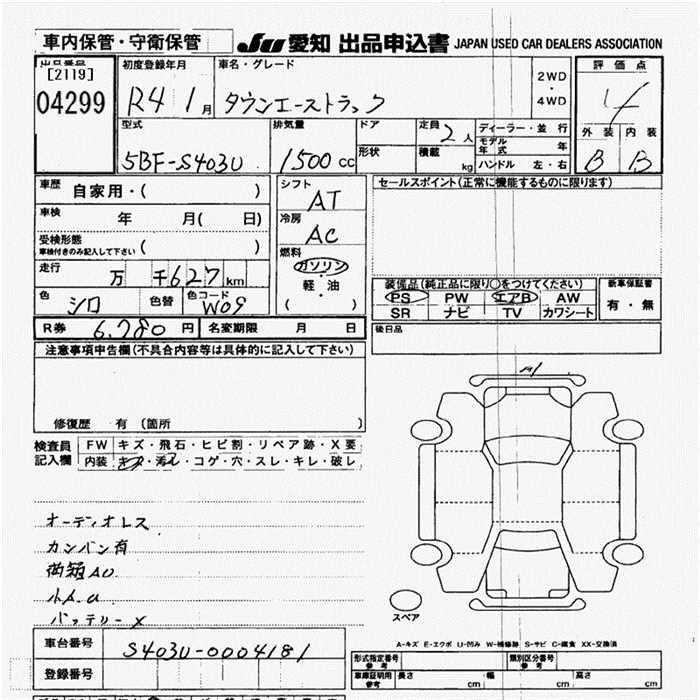 車内保管・守衛保管
JU 愛知 出品申込書 JAPAN USED CAR DEALERS ASSOCIATION
出品番号
[2119]
04299
初度登録年月
R4 1月
車名・グレード
タウンエーストラック
2WD
・
4WD
評価点
4
外装 内装
B B
型式
5BF-S403U
排気量
1500cc
ドア
形状
定員
2人
積載
kg
ディーラー・並行
モデル年式 年
ハンドル 左・右
車歴 自家用・( )
車検 年 月( 日)
受検形態
車検付きのみ記入して下さい ( )
走行 万 千627km
色 シロ 色替 色コード W09
シフト
AT
冷房
AC
燃料
ガソリン
・
軽・油
・
( )
セールスポイント(正常に機能するものに限ります)
装備品(純正品に限り○をつけてください)
PS PW エアB AW
SR ナビ TV カワシート
新車保証書
有・無
R券 6,780円 名変期限 月 日
後日品
注意事項申告欄(不具合内容等は具体的に記入して下さい)
修復歴 有 (箇所 )
検査員記入欄
FW キズ・飛石・ヒビ割・リペア跡・X要
内装 キズ・汚レ・コゲ・穴・スレ・キレ・破レ
オーディオレス
カンバン有
バッテリーX
A1
スペア
A-キズ E-エクボ U-凹み W-補修跡 S-サビ C-腐食 XX-交換済
車台番号 S403U-0004181
登録番号
形式指定番号
参考
類別区分番号
参考
車庫証明用
参考
長さ cm 幅 cm 高さ cm